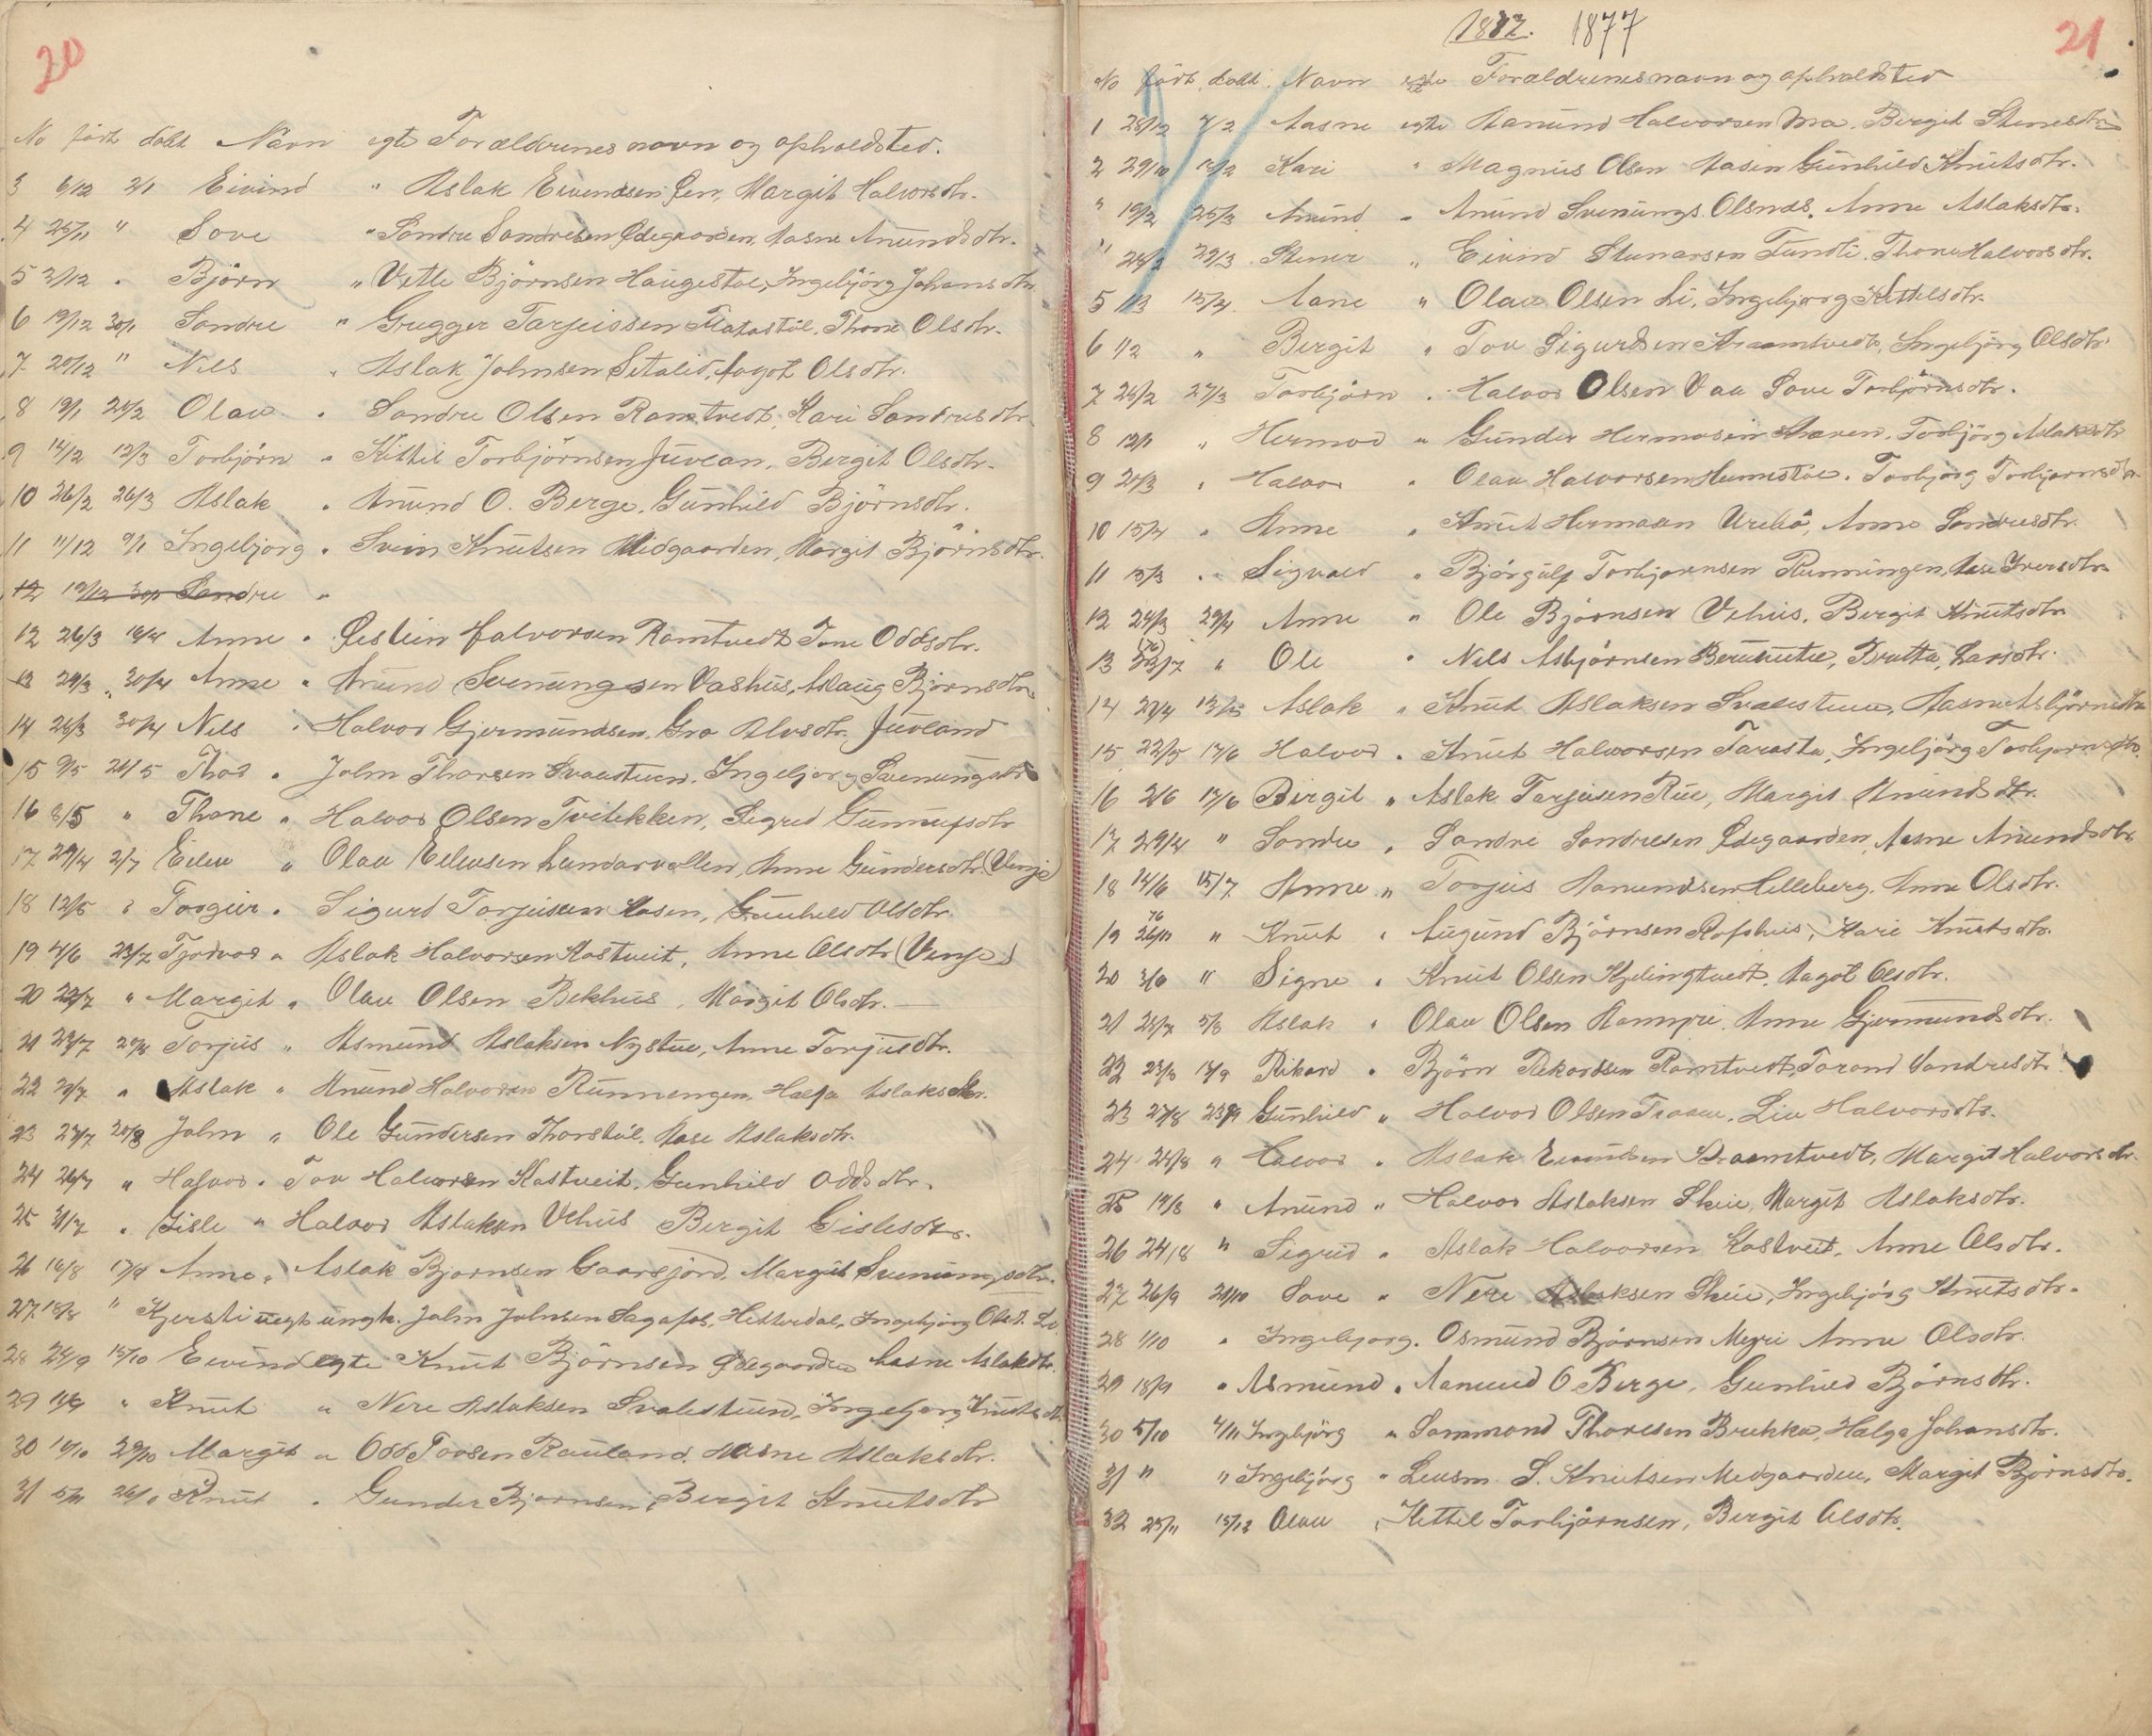 20
No født døbt Navn egte Forældrenes navn og opholdsted.
3 6/12 2/1 Eivind " Aslak Eivendsen Øen, Margit Halvorsdtr.
4 25/11 " Sove " Sondre Sondresen Ødegaarden, Aasne Anundsdtr.
5 2/12 . Björn " Vetle Björnsen Haugestøl, Ingebjörg Johansdtr
6 19/12 30/1 Sondre " Gregger Tarjeissen, Thone Olsdtr.
7 20/12 " Nils " Aslak Johnsen Setalid, Aagot Olsdtr.
8 19/1 24/2 Olav . Sondre Olsen Ramtvedt, Kari Sondresdtr.
9 14/2 12/3 Torbjörn " Kittil Torbjörnsen Juvlan, Bergit Olsdtr.
10 26/2 26/3 Aslak . Anund O. Berge, Gunhild Björnsdtr.
11 11/12 9/1 Ingebjorg . Svein Knutsen Midgaarden, Margit Björnsdtr.
12 19/12 30/1 Sondre "
12 26/3 16/4 Anne . Øistein Halvorsen Ramtvedt Tone Oddsdtr.
13 24/3 30/4 Anne " Anund Svenungsen Vashus, Aslaug Björnsdtr.
14 28/3 30/4 Nils . Halvor Gjermundsen, Gro Alvsdtr. Juvland
15 9/5 26/5 Thor . John Thorsen Svalestuen, Ingebjorg Svenungsdtr
16 8/5 " Thone " Halvor Olsen Tveitekken, Sigrid Gunnufsdtr
17 29/4 2/7 Eilev " Olav Eilevsen Lundarvollen, Anne Gundersdtr. (Vinje)
18 12/5 " Torgeir . Sigurd Torjeisen Aasen, Gunhild Olsdtr.
19 4/6 23/7 Tjodvor " Aslak Halvorsen Kostveit, Anne Olsdtr (Vinje)
20 22/7 " Margit " Olav Olsen Bekhus, Margit Olsdtr.
21 29/7 20/8 Torjus " Asmund Aslaksen Nystue, Anne Torjusdtr.
22 20/7 " Aslak " Anund Halvorsen Runnengen, Helga Aslaksdtr.
23 27/7 20/8 John " Ole Gundersen Thorstøl, Aase Aslaksdtr.
24 26/7 " Halvor . Tov Halvorsen Kostveit, Gunhild Oddsdtr.
25 31/7 . Gisle " Halvor Aslaksen Vehus Bergit Gislesdtr.
26 16/8 17/9 Anne " Aslak Bjornsen Gaarsjord, Margit Svenungsdtr.
27 18/8 " Kjersti uegt. ungk. John Johnsen Sagafos, Hitterdal, Ingebjörg Olsd. Li
28 24/9 15/10 Eivind egte Knut Björnsen Ødegaarden Aasne Aslaksdtr.
29 " Knut " Nere Aslaksen Svalestuen, Ingebjorg Knutsdtr.
30 10/10 29/10 Margit " Odd Tovsen Rauland, Aasne Aslaksdtr.
31 5/11 Knut . Gunder Bjornsen, Bergit Knutsdtr
1872. 1877
21
No født, døbt. Navn egte Forældrenes navn og opholdsted
1 28/12 4/2 Aasne egte Aanund Halvorsen Mra. Bergit Stenersdtr
2 29/10 18/2 Kari " Magnus Olsen Aasen Gunhild Knutsdtr.
" 19/2 25/3 Anund " Anund Svenungs. Olsnes, Anne Aslaksdtr.
" 24/2 29/3 Stener " Eivind Stenarsen Tundli. Thone Halvorsdtr.
5 1/3 15/4 Aane " Olav Olsen Li, Ingebjorg Kittelsdtr.
6 1/2 " Bergit " Tov Sigurdsen, Ingebjörg Olsdtr.
7 26/2 27/3 Torbjörn . Halvor Olsen Vaa Sove Torbjörnsdtr.
8 12/1 " Hermod " Gunder Hermodsen, Torbjörg Aslaksdtr
9 20/3 . Halvor . Olav Halvorsen, Torbjorg Torbjornsdtr
10 15/4 . Anne . Knut Hermosen Urebø, Anne Sondresdtr.
11 15/3 . Sigvald " Björgulf Torbjornsen Runningen, Aase Iversdtr
12 24/3 29/4 Anne " Ole Björnsen Vehus, Bergit Knutsdtr
13 " Ole . Nils Asbjörnsen Berunutu, Britta Larsdtr.
14 20/4 13/5 Aslak " Knut Aslaksen Svalestuen, Aasne Asbjörnsdtr
15 22/5 17/6 Halvor . Knut Halvorsen, Ingebjörg Torbjornsdtr.
16 2/6 17/6 Birgit " Aslak Tarjeisen Rue, Margit Anundsdtr.
17 29/4 " Sondre . Sondre Sondresen Ødegaarden, Aasne Anundsdtr
18 14/6 15/7 Anne " Torjus Aanundsen Lilleberg. Anne Olsdtr.
19 76 26/11 " Knut . Augund Björnsen Rofshus, Kari Knutsdtr.
20 3/6 " Signe . Knut Olsen Kjelingtvedt, Aagot Olsdtr.
21 28/7 5/8 Aslak . Olav Olsen. Anne Gjermundsdtr.
22 23/8 18/9 Rikard . Björn Rikardsen Romtvedt, Torand Sondresdtr
23 27/8 23/9 Gunhild " Halvor Olsen Traaen. Liv Halvorsdtr.
24 24/8 " Halvor . Aslak Eivindsen, Margit Halvorsdtr.
25 14/8 " Anund " Halvor Aslaksen Skeie, Margit Aslaksdtr.
26 24/8 " Sigrid " Aslak Halvorsen Kostveit, Anne Olsdtr.
27 26/9 21/10 Sove " Nere Aslaksen Skeie, Ingebjörg Knutsdtr.
28 1/10 . Ingebjorg. Osmund Björnsen Myri Anne Olsdtr.
29 18/9 . Asmund . Aanund O Berge, Gunhild Björnsdtr.
30 5/10 4/11 Ingbjörg " Sommond Thoresen Brekke, Helge Johansdtr.
31 " " Ingebjörg " Lensm. S. Knutsen Medgaarden, Margit Björnsdtr.
32 25/11 15/12 Olav . Kittel Torbjörnsen, Bergit Olsdtr.